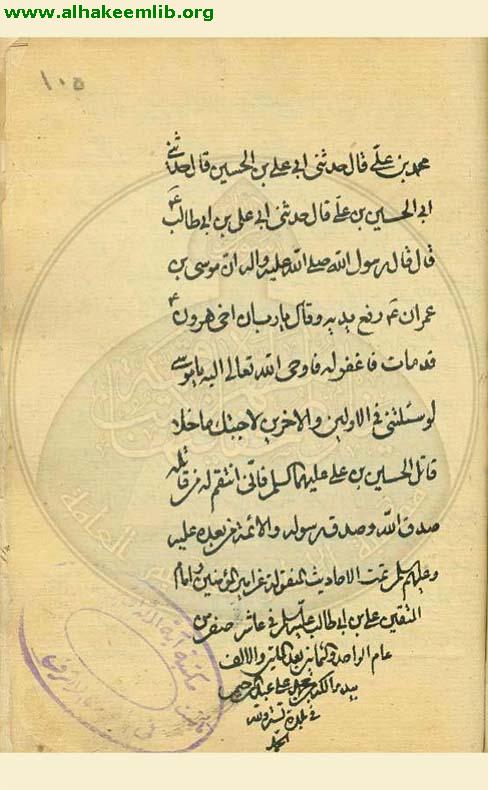 www.alhakeemlib.org
١٠٥
محمد بن علي قال حدثني ابي علي بن الحسين قال حدثني
ابي الحسين بن علي قال حدثني ابي علي بن ابي طالب ع
قال قال رسول الله صلى الله عليه واله ان موسى بن
عمران ع رفع يديه وقال يا رب ان اخي هرون ع
قد مات فاغفر له فاوحى الله تعالى اليه يا موسى
لو سئلتني في الاولين والاخرين لاجبتك ما خلا
قاتل الحسين بن علي عليهما السلم فاني انتقم له من قاتله
صدق الله وصدق رسوله والائمة من بعده عليه
وعليهم السلم تمت الاحاديث المنقولة عن امير المؤمنين وامام
المتقين علي بن ابي طالب عليه السلم في عاشر صفر من
عام الواحد والثمانين بعد المائتين والالف
في بلدة
مكتبة آية الله